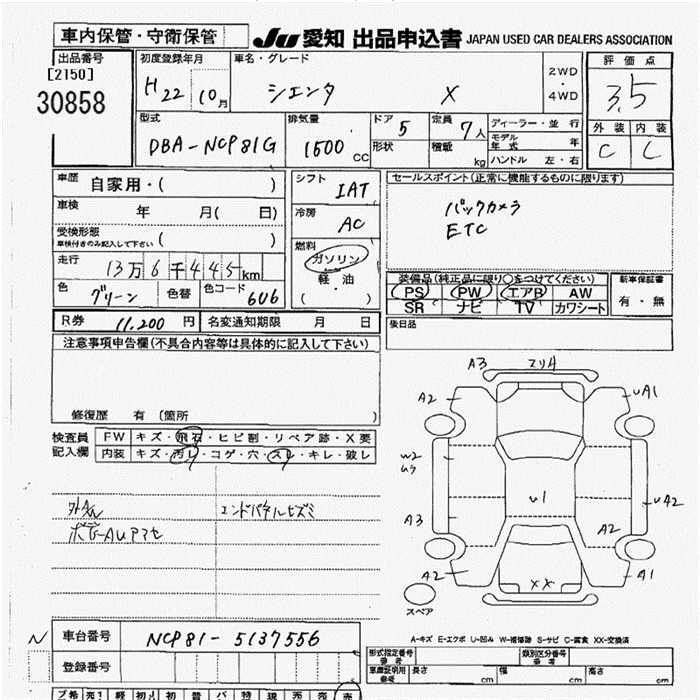 車内保管・守衛保管
JU 愛知 出品申込書 JAPAN USED CAR DEALERS ASSOCIATION
出品番号
[2150]
30858
初度登録年月
H 22 10月
車名・グレード
シエンタ X
2WD
4WD
評価点
3.5
外装 内装
C C
型式
DBA-NCP81G
排気量
1500 CC
ドア 5
形状
定員 7人
積載 kg
ディーラー・並行
モデル年式 年
ハンドル 左・右
車歴 自家用・( )
車検 年 月( 日)
受検形態
車検付きのみ記入して下さい ( )
走行 13万6千445km
色 グリーン 色替 色コード 6U6
シフト IAT
冷房 AC
燃料 ガソリン
軽・油
( ・ )
セールスポイント(正常に機能するものに限ります)
バックカメラ
ETC
装備品(純正品に限り○をつけてください)
PS PW エアB AW
SR ナビ TV カワシート
新車保証書
有・無
後日品
R券 11,200 円 名変通知期限 月 日
注意事項申告欄(不具合内容等は具体的に記入して下さい)
修復歴 有 〔箇所 〕
検査員記入欄
FW キズ・飛石・ヒビ割・リペア跡・X要
内装 キズ・汚レ・コゲ・穴・スレ・キレ・破レ
エンドパネルヒズミ
A3
A2
uA1
w2
ムラ
A3
u1
uA2
A2
A2
XX
A1
スペア
A-キズ E-エクボ U-凹み W-補修跡 S-サビ C-腐食 XX-交換済
N 車台番号 NCP81-5137556
登録番号
形式指定番号 類別区分番号
車庫証明用参考 長さ cm 幅 cm 高さ cm